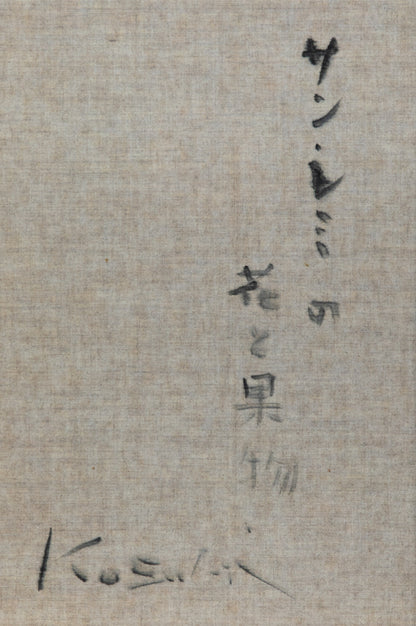 サン・レミの
花と果物